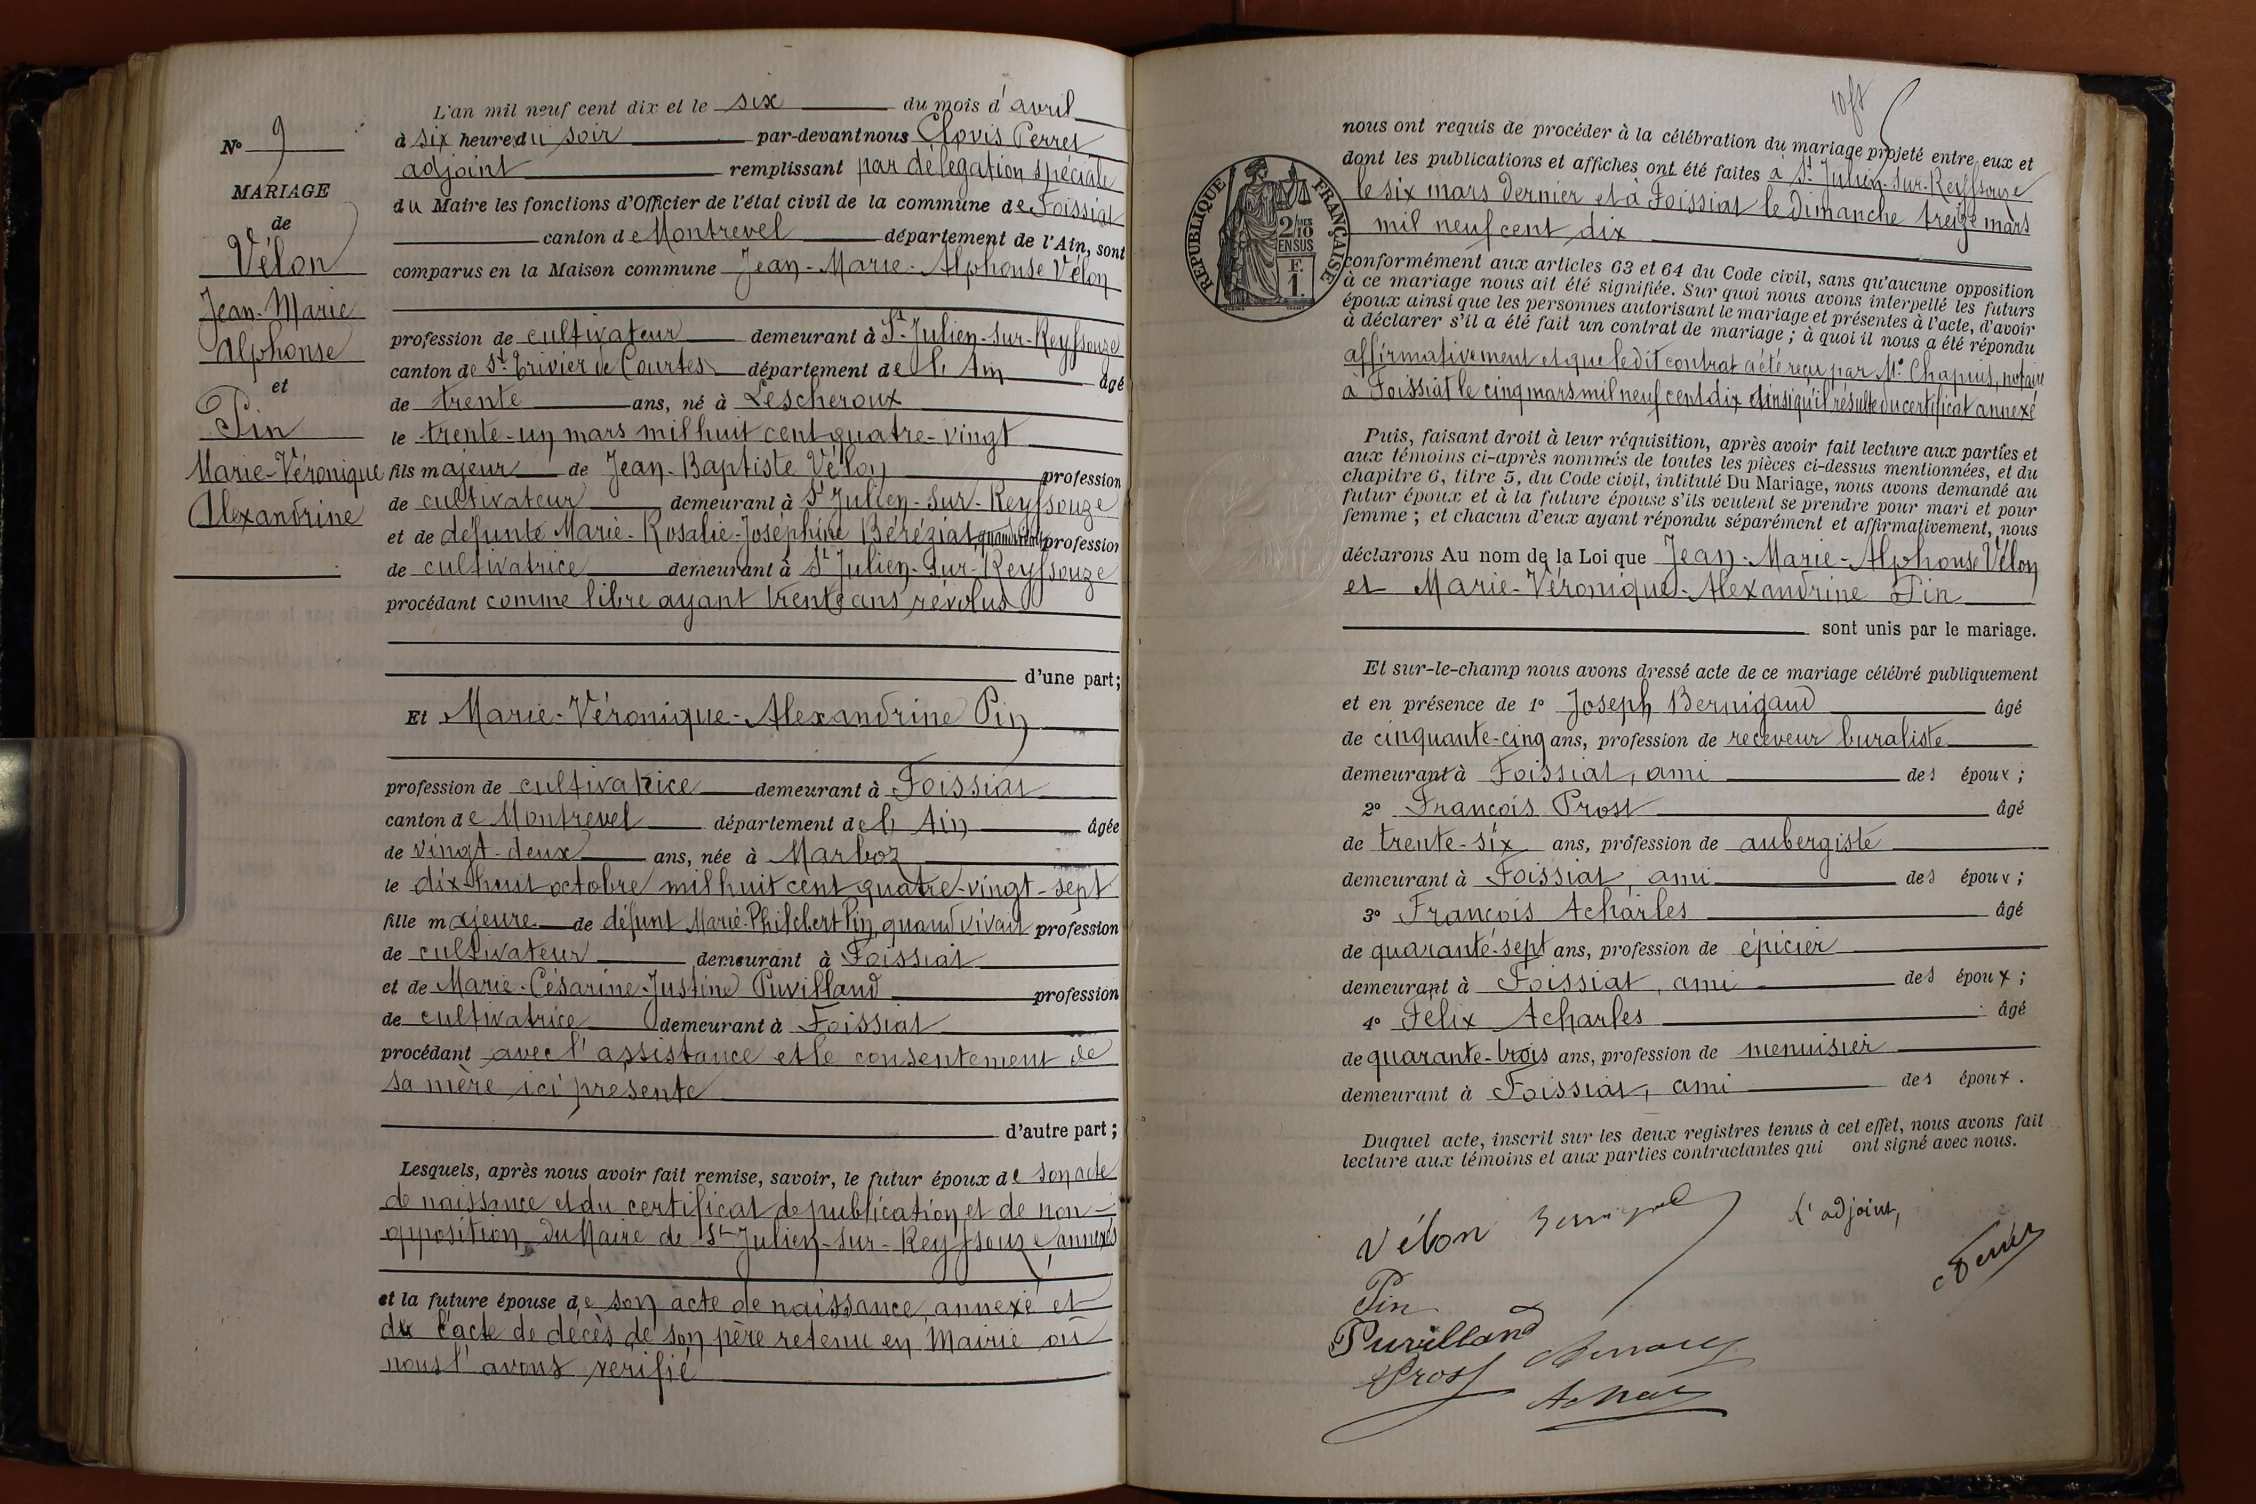 N° 9
MARIAGE
de
Vélon
Jean-Marie
Alphonse
et
Pin
Marie-Véronique
Alexandrine
L'an mil neuf cent dix et le six du mois d'avril
à six heures du soir par-devant nous Clovis Perret
adjoint remplissant par délégation spéciale
du Maire les fonctions d'Officier de l'état civil de la commune de Foissiat
canton de Montrevel département de l'Ain, sont
comparus en la Maison commune Jean-Marie-Alphonse Vélon
profession de cultivateur demeurant à St-Julien-sur-Reyssouze
canton de St Trivier de Courtes département de l'Ain âgé
de trente ans, né à Lescheroux
le trente-un mars mil huit cent quatre-vingt
fils majeur de Jean-Baptiste Vélon profession
de cultivateur demeurant à St Julien-sur-Reyssouze
et de défunte Marie-Rosalie-Joséphine Béréziat, quand vivait profession
de cultivatrice demeurant à St Julien-sur-Reyssouze
procédant comme libre ayant trente ans révolus
d'une part;
Et Marie-Véronique-Alexandrine Pin
profession de cultivatrice demeurant à Foissiat
canton de Montrevel département de l'Ain âgée
de vingt-deux ans, née à Marboz
le dix-huit octobre mil huit cent quatre-vingt-sept
fille majeure de défunt Marie-Philibert Pin, quand vivait profession
de cultivateur demeurant à Foissiat
et de Marie-Césarine-Justine Puvilland profession
de cultivatrice demeurant à Foissiat
procédant avec l'assistance et le consentement de
sa mère ici présente
d'autre part;
Lesquels, après nous avoir fait remise, savoir, le futur époux de son acte
de naissance et du certificat de publication et de non-
opposition du Maire de St Julien-sur-Reyssouze, annexés
et la future épouse de son acte de naissance, annexé et
de l'acte de décès de son père retenu en Mairie où
nous l'avons verifié
nous ont requis de procéder à la célébration du mariage projeté entre eux et
dont les publications et affiches ont été faites à St Julien-sur-Reyssouze
le six mars dernier et à Foissiat le dimanche treize mars
mil neuf cent dix
RÉPUBLIQUE FRANÇAISE
2/10
EN SUS
F.
1.
conformément aux articles 63 et 64 du Code civil, sans qu'aucune opposition
à ce mariage nous ait été signifiée. Sur quoi nous avons interpellé les futurs
époux ainsi que les personnes autorisant le mariage et présentes à l'acte, d'avoir
à déclarer s'il a été fait un contrat de mariage; à quoi il nous a été répondu
affirmativement et que le dit contrat a été reçu par Me Chapuis, notaire
à Foissiat le cinq mars mil neuf cent dix ainsi qu'il résulte du certificat annexé
Puis, faisant droit à leur réquisition, après avoir fait lecture aux parties et
aux témoins ci-après nommés de toutes les pièces ci-dessus mentionnées, et du
chapitre 6, titre 5, du Code civil, intitulé Du Mariage, nous avons demandé au
futur époux et à la future épouse s'ils veulent se prendre pour mari et pour
femme; et chacun d'eux ayant répondu séparément et affirmativement, nous
déclarons Au nom de la Loi que Jean-Marie-Alphonse Vélon
et Marie-Véronique-Alexandrine Pin
sont unis par le mariage.
Et sur-le-champ nous avons dressé acte de ce mariage célébré publiquement
et en présence de 1° Joseph Bernigaud âgé
de cinquante-cinq ans, profession de receveur buraliste
demeurant à Foissiat, ami des époux;
2° François Prost âgé
de trente-six ans, profession de aubergiste
demeurant à Foissiat, ami des époux;
3° François Acharles âgé
de quarante-sept ans, profession de épicier
demeurant à Foissiat, ami des époux;
4° Félix Acharles âgé
de quarante-trois ans, profession de menuisier
demeurant à Foissiat, ami des époux.
Duquel acte, inscrit sur les deux registres tenus à cet effet, nous avons fait
lecture aux témoins et aux parties contractantes qui ont signé avec nous.
Vélon
L'adjoint,
Pin
Puvilland
Prost